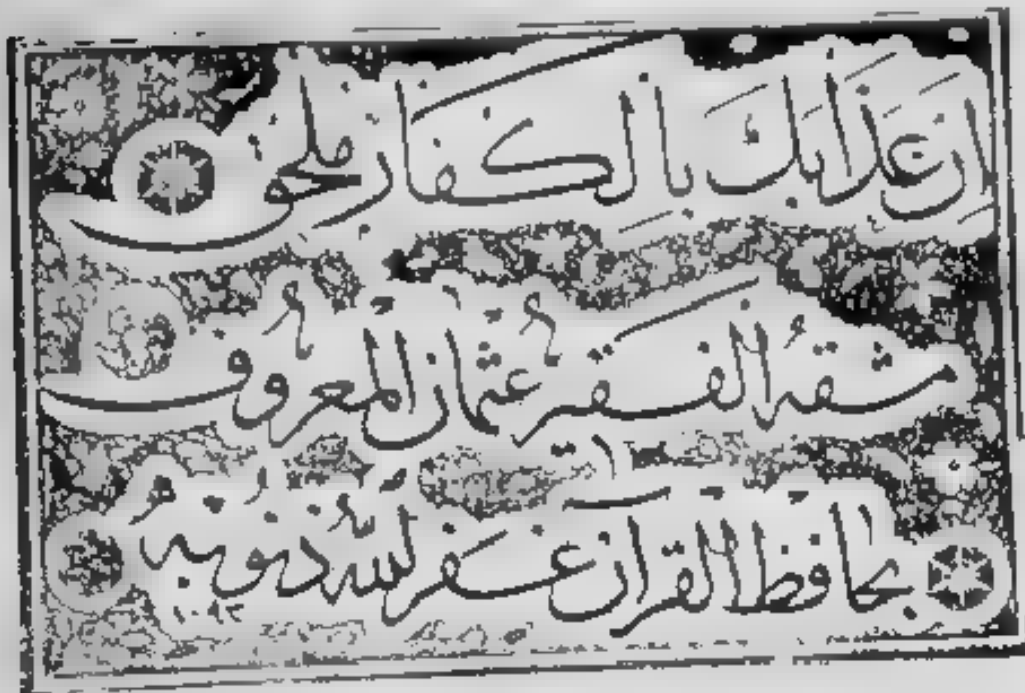 ان عذابك بالكفار ملحق
مشقه الفقير عثمان المعروف
بحافظ القرآن غفر الله ذنوبه
١٠٩٣